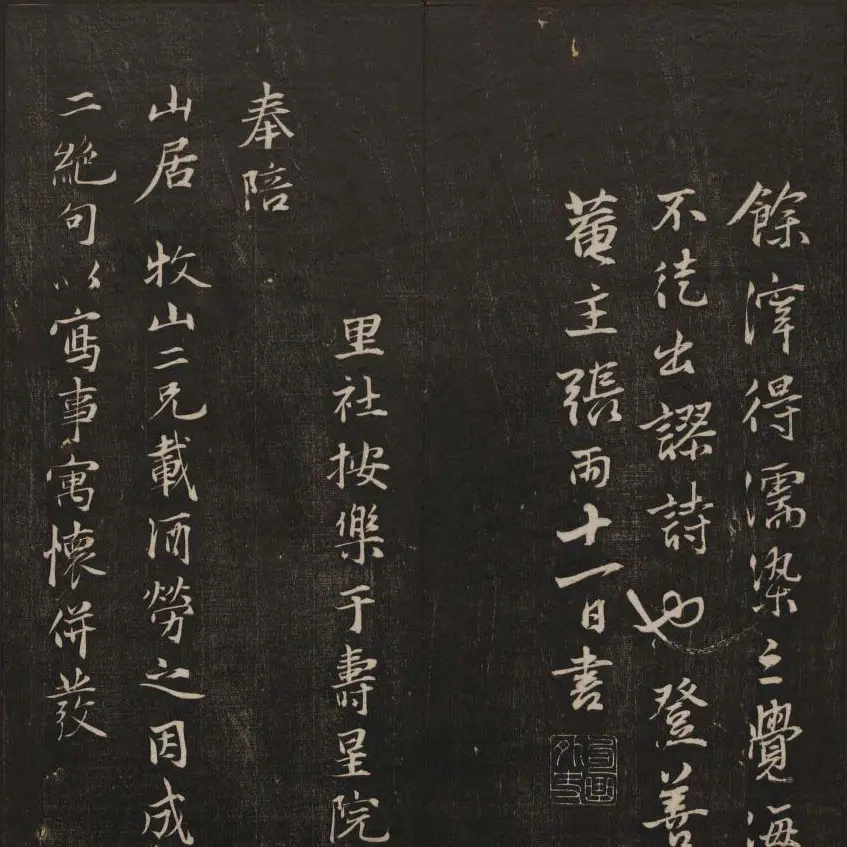 餘滓得濡染之覺海
不徒出謬詩也登善
菴主張雨十一日書
句曲外史
里社按樂于壽星院
奉陪
山居 牧山二兄載酒勞之因成
二絶句以寫事寓懷併發